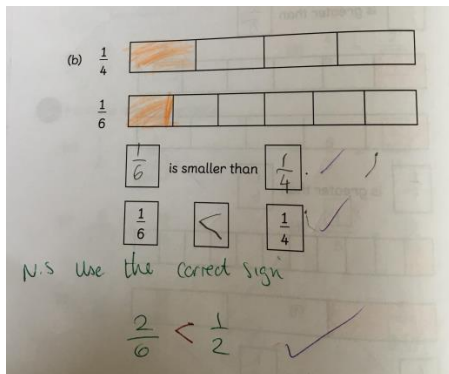 (b) 1/4
1/6
1/6 is smaller than 1/4.
1/6 < 1/4
N.S Use the correct sign
2/6 < 1/2